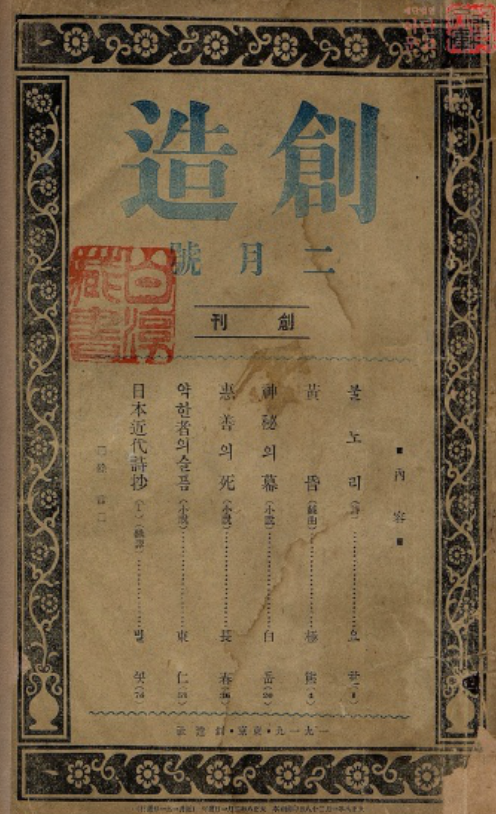 創造
二月號
創刊
白淳
藏書
內容
불노리(詩)……요한
黃昏(戱曲)……極熊
神秘의幕(小說)……白岳
惠善의死(小說)……長春
약한者의슬픔(小說)……東仁
日本近代詩抄(1)(飜譯)……벌꽃
一九一九・東京・創造社